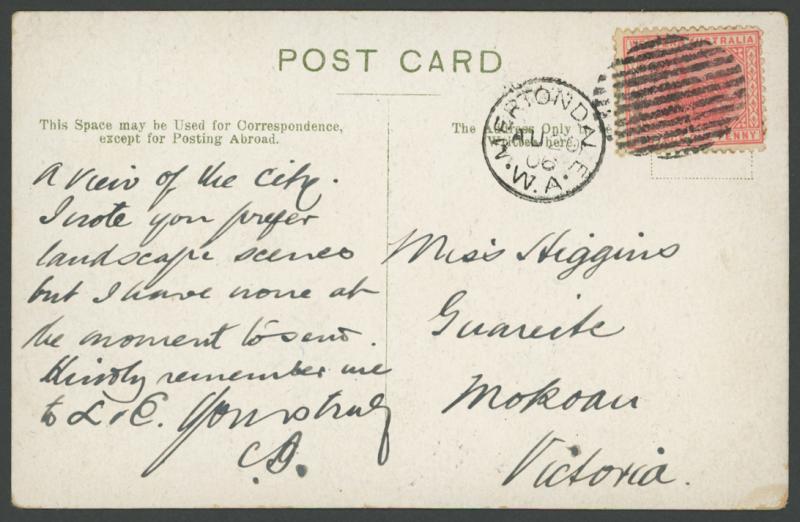 POST CARD
This Space may be Used for Correspondence,
except for Posting Abroad.
A view of the city.
I note you prefer
landscape scenes
but I have none at
the moment to send.
Kindly remember me
to L & C. Yours truly
C.D.
The Address Only
Written here.
MERTONDALE
AU 29
06
W.A.
WESTERN AUSTRALIA
PENNY
Miss Higgins
Mokoan
Victoria.